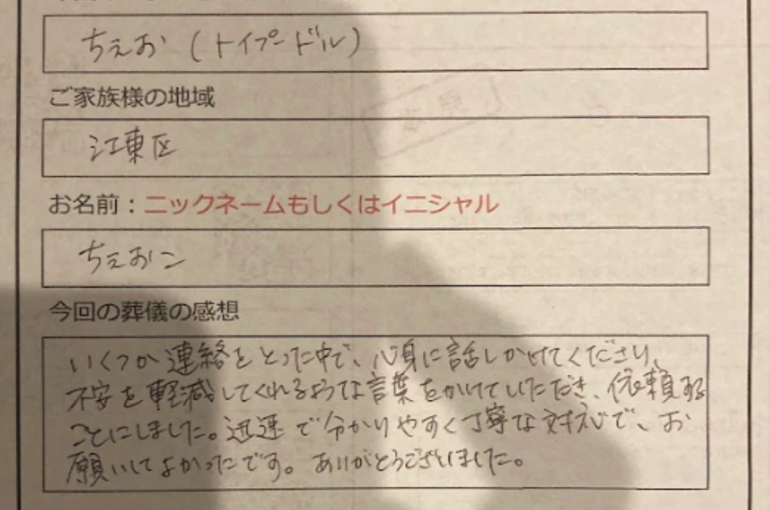 ちえお(トイプードル)
ご家族様の地域
江東区
お名前：ニックネームもしくはイニシャル
ちえおこ
今回の葬儀の感想
いくつか連絡をとった中で、心身に話しかけてくださり、
不安を軽減してくれるような言葉をかけていただき、依頼する
ことにしました。迅速で分かりやすく丁寧な対応で、お
願いしてよかったです。ありがとうございました。